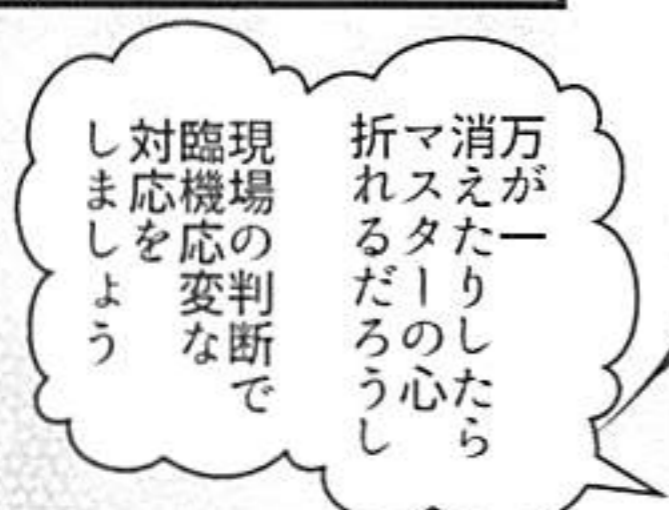 万が一
消えたりしたら
マスターの心
折れるだろうし
現場の判断で
臨機応変な
対応を
しましょう